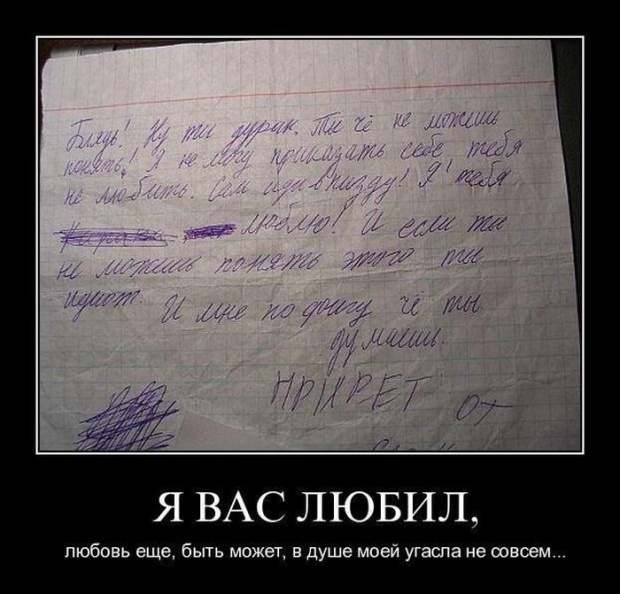 Блядь! Ну ты дурак. Ты чё не можешь
понять! Я не могу приказать себе тебя
не любить. Сам иди в пизду! Я тебя
люблю! И если ты
не можешь понять этого ты
идиот. И мне по фигу чё ты
думаешь.
ПРИВЕТ от
Я ВАС ЛЮБИЛ,
любовь еще, быть может, в душе моей угасла не совсем...